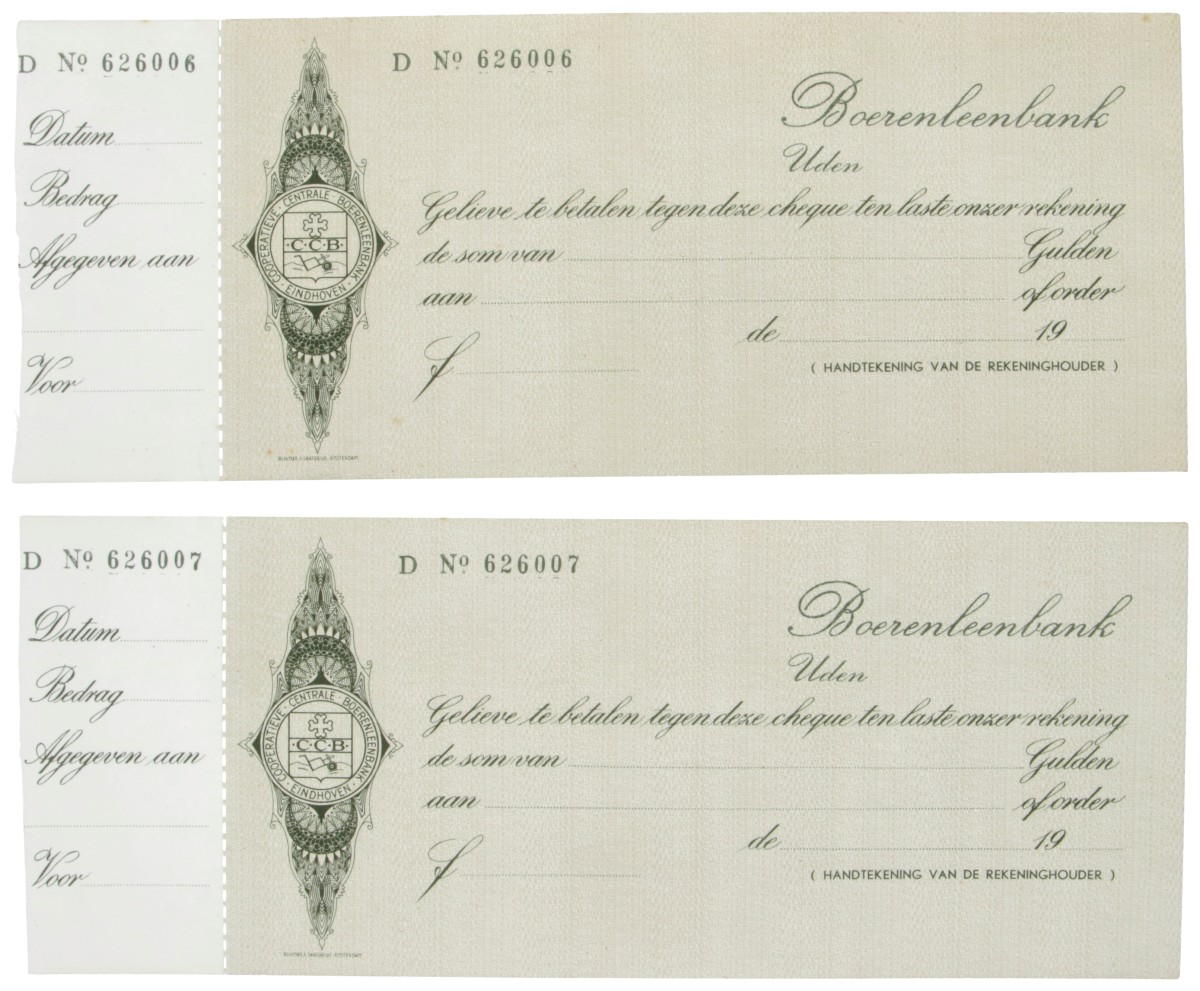 D Nº 626006
Datum
Bedrag
Afgegeven aan
Voor
COÖPERATIEVE CENTRALE BOERENLEENBANK
C.C.B.
EINDHOVEN
D Nº 626006
Boerenleenbank
Uden
Gelieve te betalen tegen deze cheque ten laste onzer rekening
de som van Gulden
aan of order
de 19
f
( HANDTEKENING VAN DE REKENINGHOUDER )
D Nº 626007
Datum
Bedrag
Afgegeven aan
Voor
COÖPERATIEVE CENTRALE BOERENLEENBANK
C.C.B.
EINDHOVEN
D Nº 626007
Boerenleenbank
Uden
Gelieve te betalen tegen deze cheque ten laste onzer rekening
de som van Gulden
aan of order
de 19
f
( HANDTEKENING VAN DE REKENINGHOUDER )